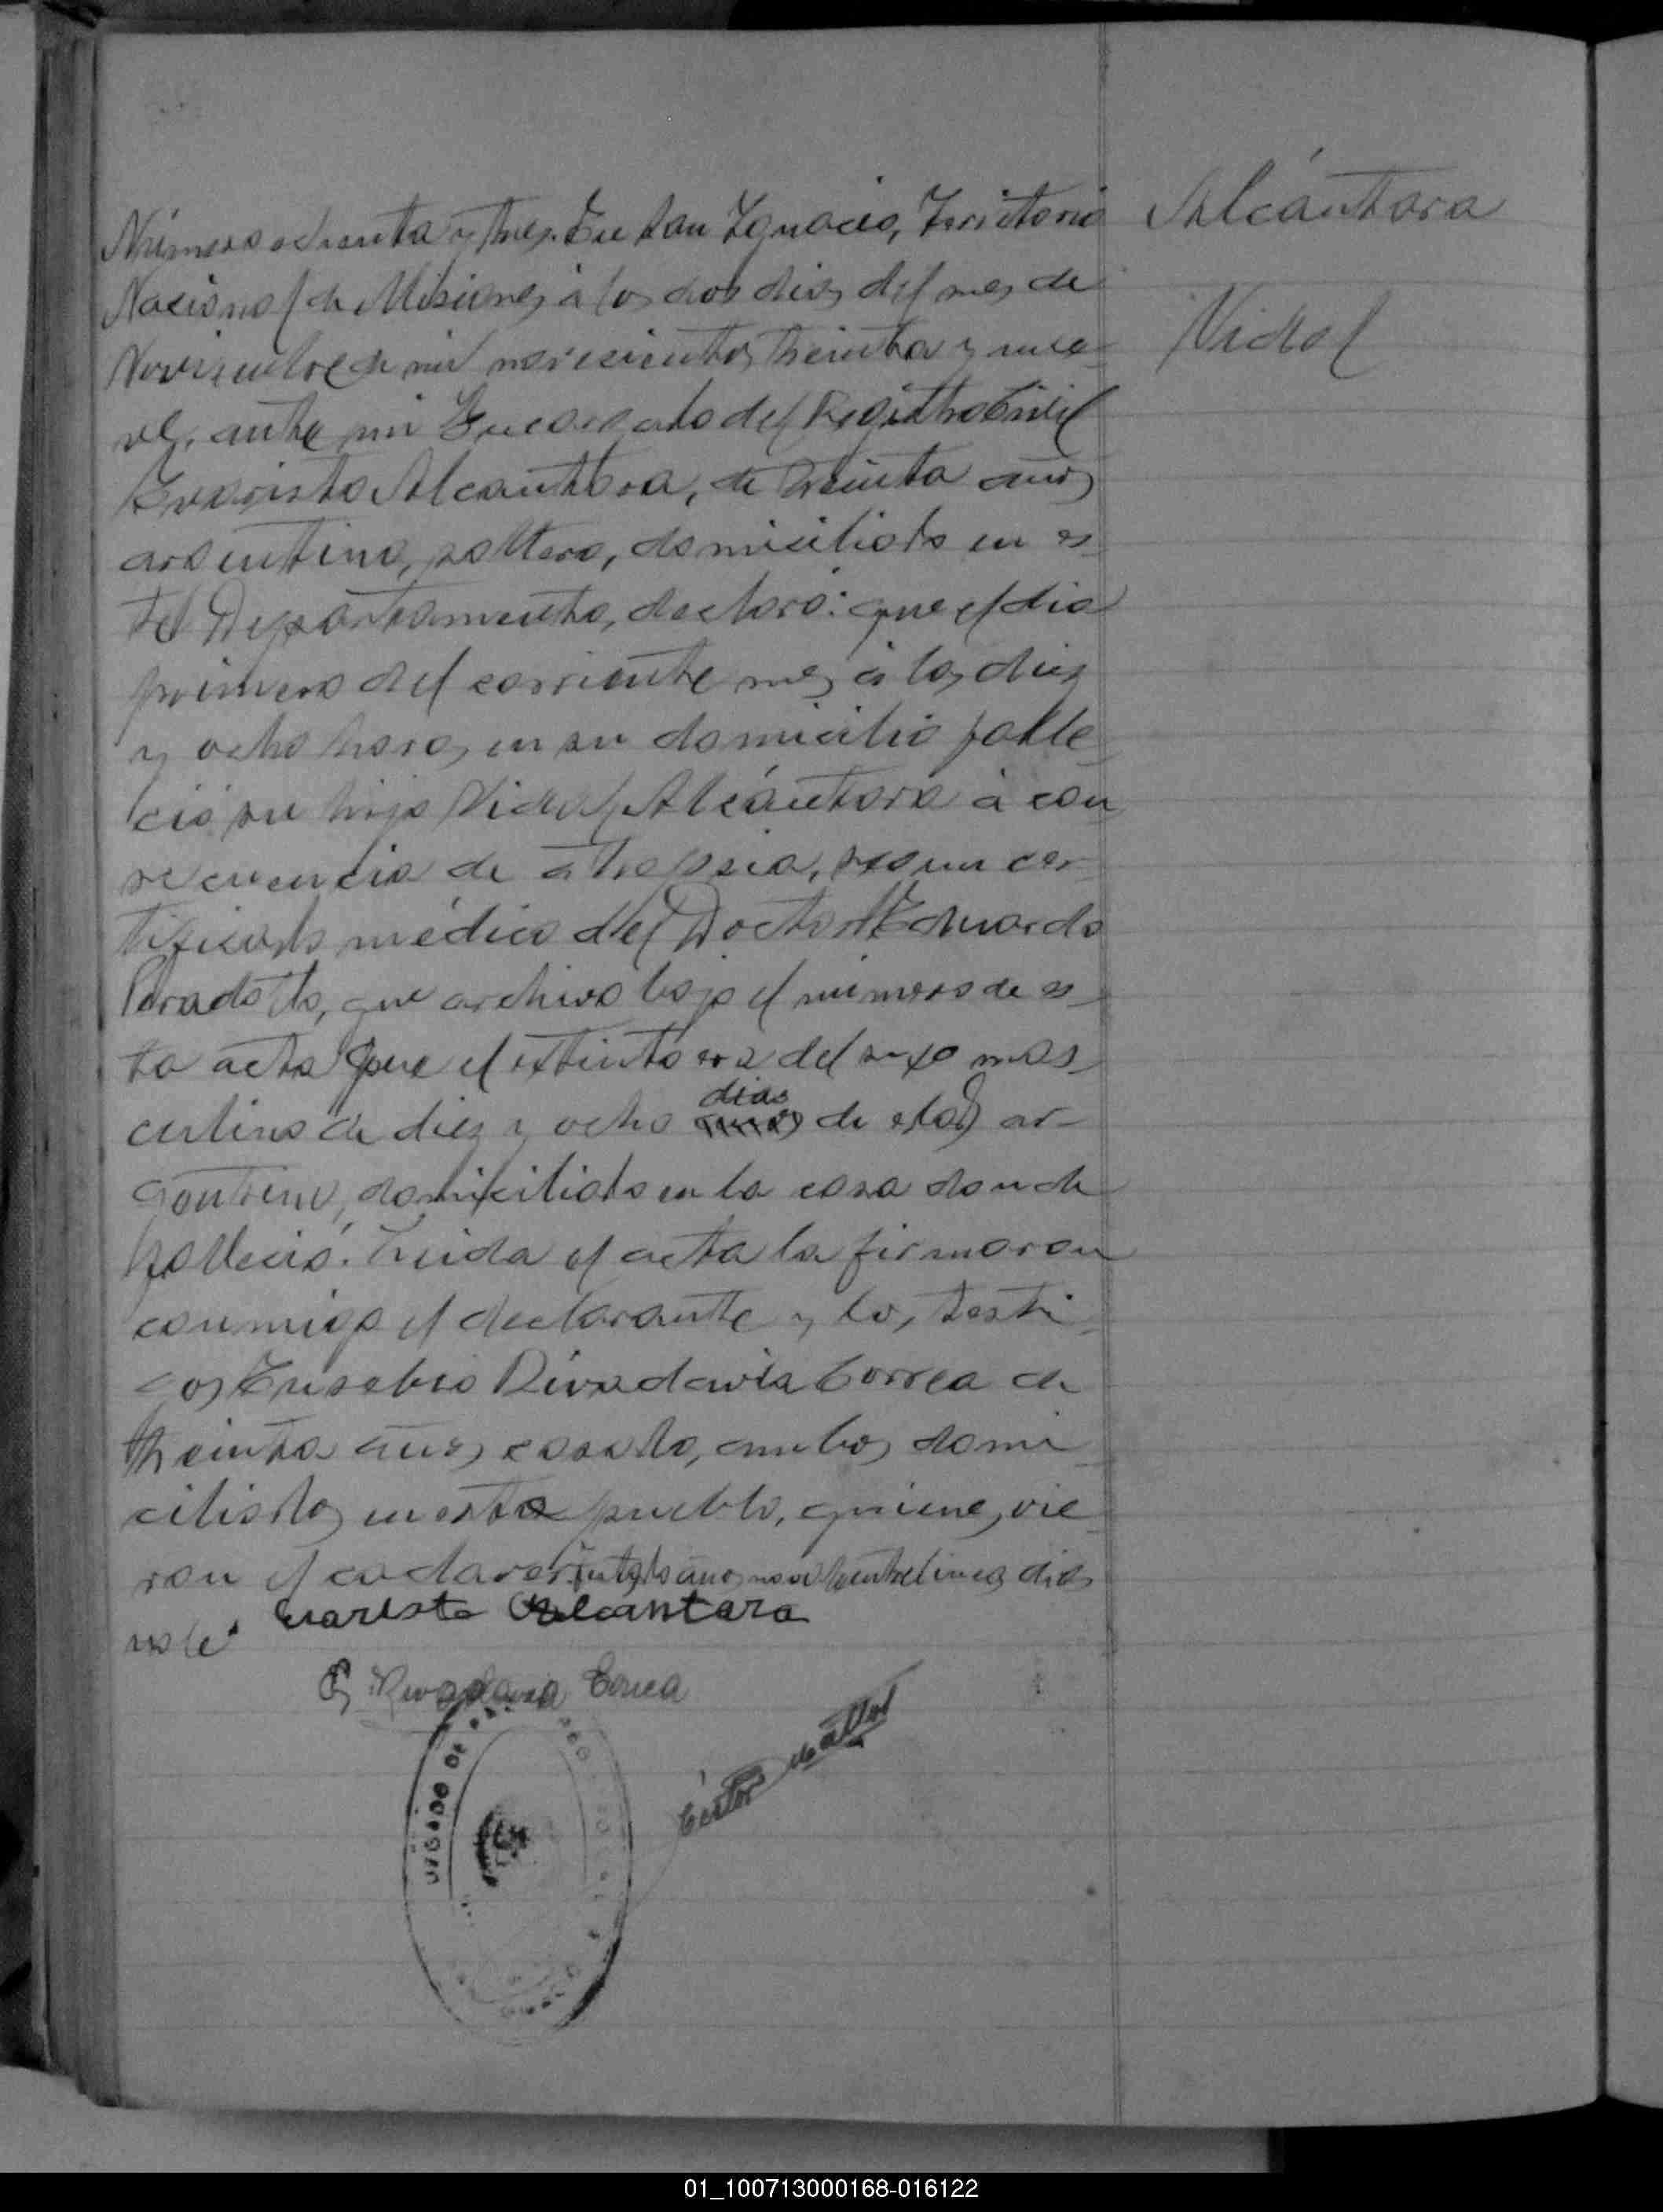 Número ochenta y tres. En San Ignacio, Territorio
Alcántara
Nacional de Misiones, a los dos dias del mes de
Vidal
Noviembre de mil novecientos treinta y nue-
ve, ante mi Encargado del Registro Civil
Evaristo Alcanttara, de treinta años
argentino, soltero, domiciliado en es-
te Departamento, declaró: que el dia
primero del corriente mes á las diez
y ocho horas, en su domicilio falle-
ció su hijo Vidal Alcántara á con
secuencia de atrepsia, segun cer-
tificado médico del Doctor Eduardo
que archivo bajo el número de es-
ta acta Que el extinto era del sexo mas-
dias
culino de diez y ocho años de edad ar-
gentino, domiciliado en la casa donde
falleció. Leida el acta la firmaron
conmigo el declarante y los testi-
gos Eusebio Rivadavia Correa de
treinta años, casado, ambos domi-
ciliados en este pueblo, quienes vie-
ron el cadaver. Testado años no vale entrelinea dias
vale.
Evaristo Alcantara
E. Rivadavia Correa